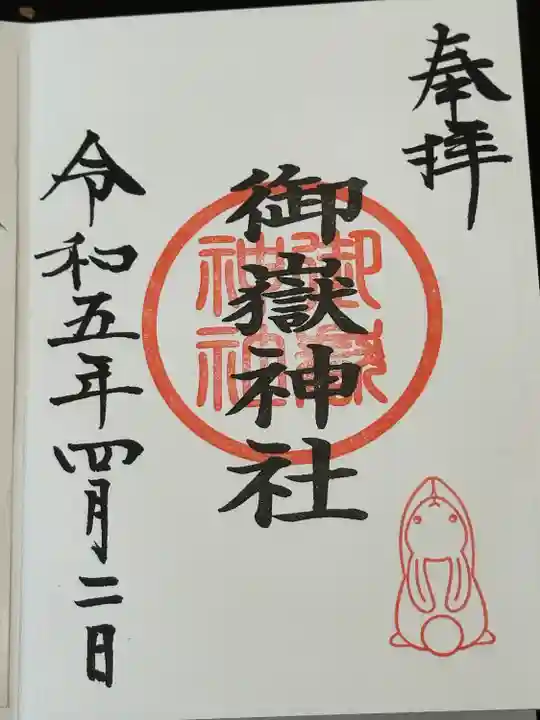 奉拝
御嶽神社
御嶽
神社
令和五年四月二日